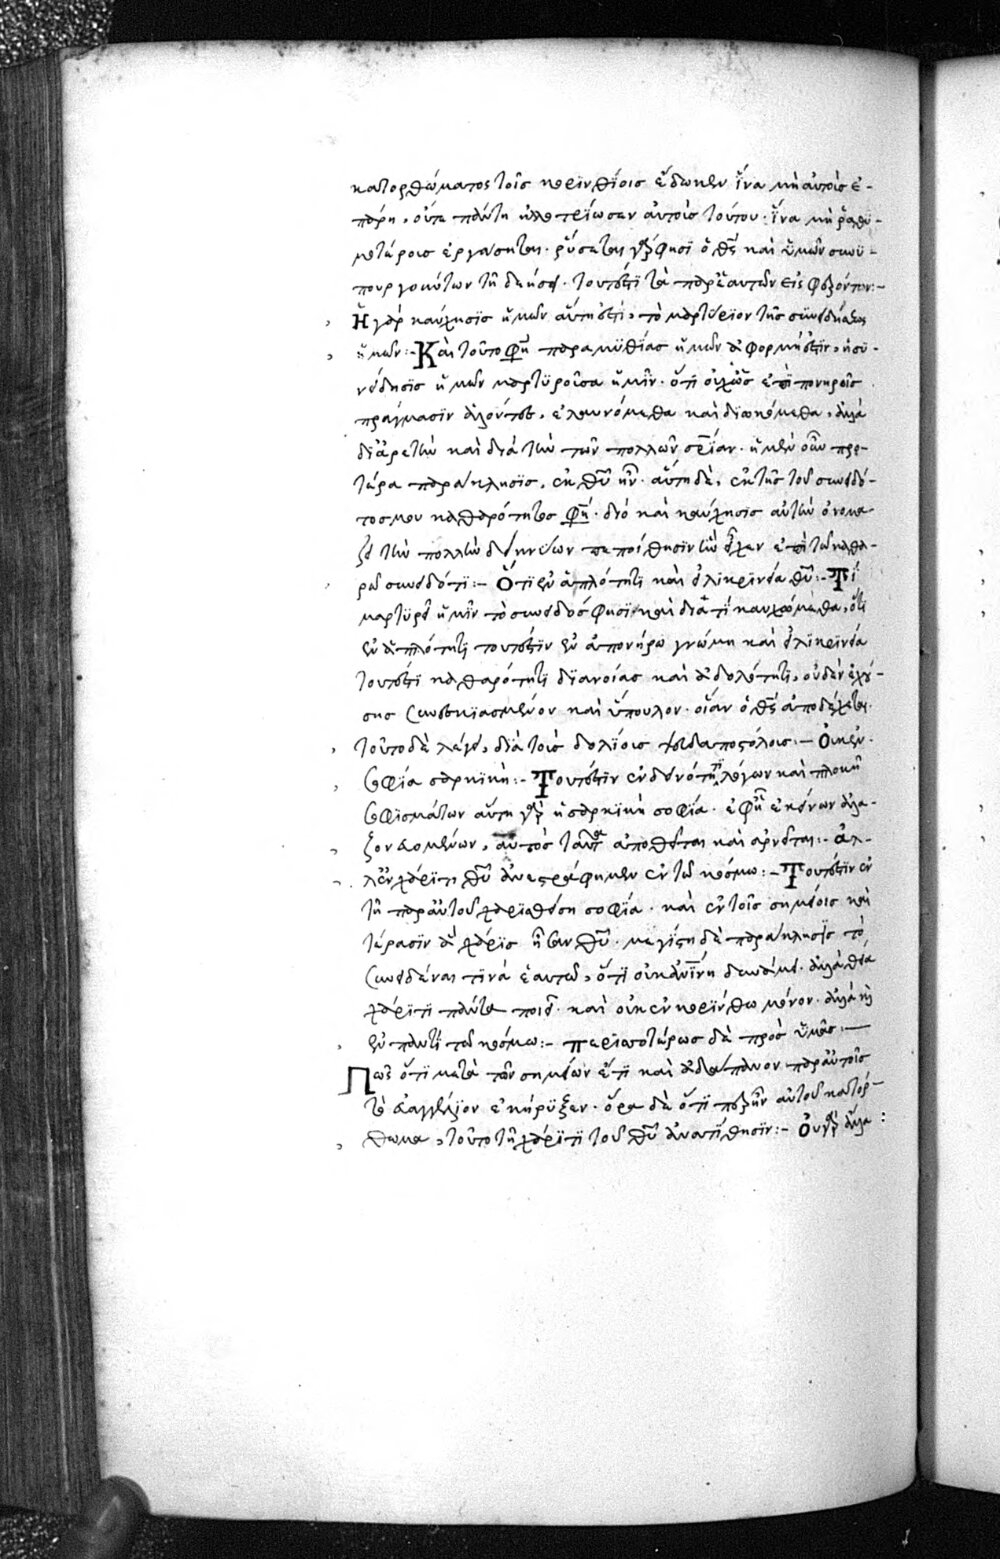 κατορθώματος τοῖς κορινθίοις ἔδωκεν ἵνα μὴ αὐτοὺς ἐ-
πάρη, οὔτε πάντη ἠλλοτρίωσεν αὐτοὺς τούτου. ἵνα μὴ ῥαθυ-
μοτέρους ἐργάσηται. ῥύσεται γάρ φησι ὁ θς καὶ ὑμῶν συνυ-
πουργούντων τῆ δεήσει. τουτέστι τὰ παρ' ἑαυτῶν εἰσφερόντων:-
Ἡ γὰρ καύχησις ἡμῶν αὕτη ἐστί, τὸ μαρτύριον τῆς συνειδήσεως
ἡμῶν:- Καὶ τοῦτο φη παραμυθίας ἡμῶν ἀφορμή ἐστιν, ἡ συ-
νείδησις ἡμῶν μαρτυροῦσα ἡμῖν. ὅτι οὐχ ὡς ἐπὶ πονηροῖς
πράγμασιν ἁλόντες, ἐλαυνόμεθα καὶ διωκόμεθα, ἀλλὰ
δι' ἀρετὴν καὶ διὰ τὴν τῶν πολλῶν σρίαν. ἡ μὲν οὖν προ-
τέρα παράκλησις, ἐκ θυ ἦν. αὕτη δὲ, ἐκ τῆς τοῦ συνειδό-
τος μου καθαρότητος φη. διὸ καὶ καύχησις αὐτὴν ὀνομά-
ζει τὴν πολλὴν δεικνύων πεποίθησιν ἣν εἶχεν ἐπὶ τῶ καθα-
ρῶ συνειδότι:- Ὅτι ἐν ἁπλότητι καὶ εἰλικρινεία θυ:- Τί
μαρτυρεῖ ἡμῖν τὸ συνειδός φησι καὶ διατί καυχώμεθα, ὅτι
ἐν ἁπλότητι τουτέστιν ἐν ἀπονήρω γνώμη καὶ εἰλικρινεία
τουτέστι καθαρότητι διανοίας καὶ ἀδολότητι, οὐδὲν ἐχού-
σης συνεσκιασμένον καὶ ὕπουλον. οἵαν ὁ θς ἀποδέχεται.
τοῦτο δὲ λέγει, διὰ τοὺς δολίους ψευδαποστόλους:- Οὐκ ἐν
σοφία σαρκικῆ:- Τουτέστιν ἐν δεινότητι λόγων καὶ πλοκῆ
σοφισμάτων αὕτη γὰρ ἡ σαρκικὴ σοφία. ἐφ' ἧ ἐκείνων ἀλα-
ζονευομένων, αὐτὸς ταύτην ἀποθεῖται καὶ ἀρνεῖται:- Ἀλ-
λ' ἐν χάριτι θυ ἀνεστράφημεν ἐν τῶ κόσμω:- Τουτέστιν ἐν
τῆ παρ' αὐτοῦ χαρισθείση σοφία. καὶ ἐν τοῖς σημείοις καὶ
τέρασιν ἃ χάρις ἦσαν θυ. μεγίστη δὲ παράκλησις τὸ
συνειδέναι τινὰ ἑαυτῶ, ὅτι οὐκ ἀνίνη δυνάμει. ἀλλὰ θεία
χάριτι πάντα ποιεῖ. καὶ οὐκ ἐν κορίνθω μόνον. ἀλλὰ καὶ
ἐν παντὶ τῶ κόσμω:- Περισσοτέρως δὲ πρὸς ὑμᾶς:-
Πῶς ὅτι μετὰ τῶν σημείων ἔτι καὶ ἀδάπανον παρ' αὐτοῖς
τὸ εὐαγγέλιον ἐκήρυξεν. ὅρα δὲ ὅτι πάλιν αὐτοῦ κατόρ-
θωμα, τοῦτο τῆ χάριτι τοῦ θυ ἀνατίθησιν:- Οὐ γὰρ ἄλλα: